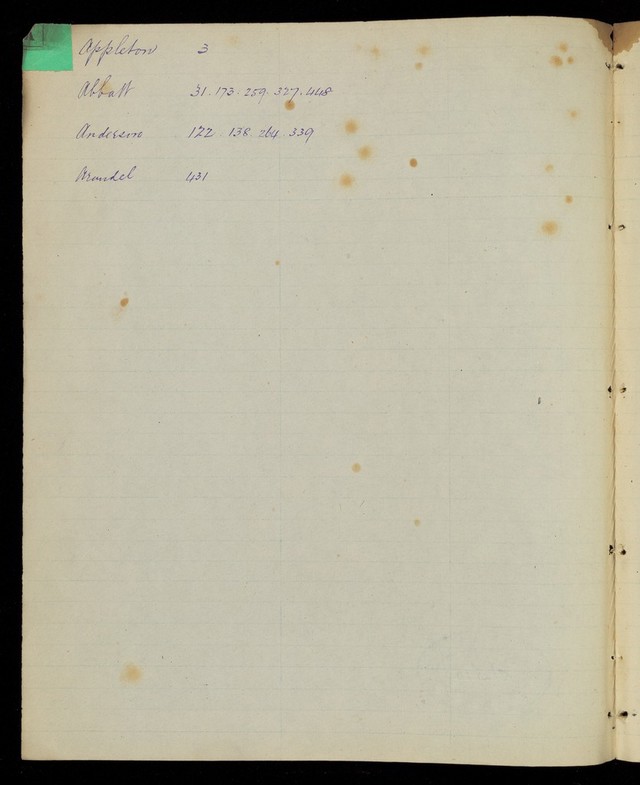 Appleton 3
Abbatt 31. 173. 259. 327. 448
Anderson 122. 138. 264. 339
Arundel 431